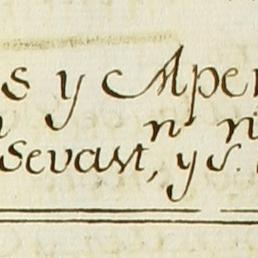 s y Aper
n n
Sevast, y S.